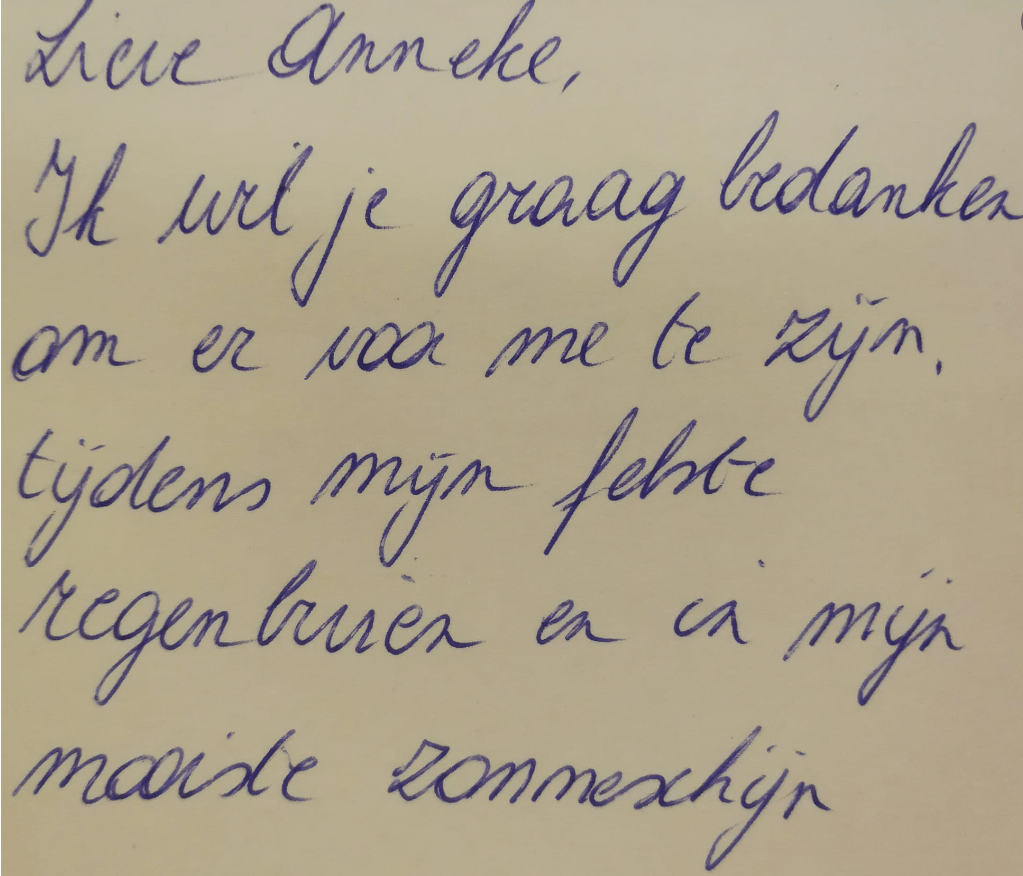 Lieve Anneke,
Ik wil je graag bedanken
om er voor me te zijn.
tijdens mijn felste
regenbuien en in mijn
mooiste zonneschijn